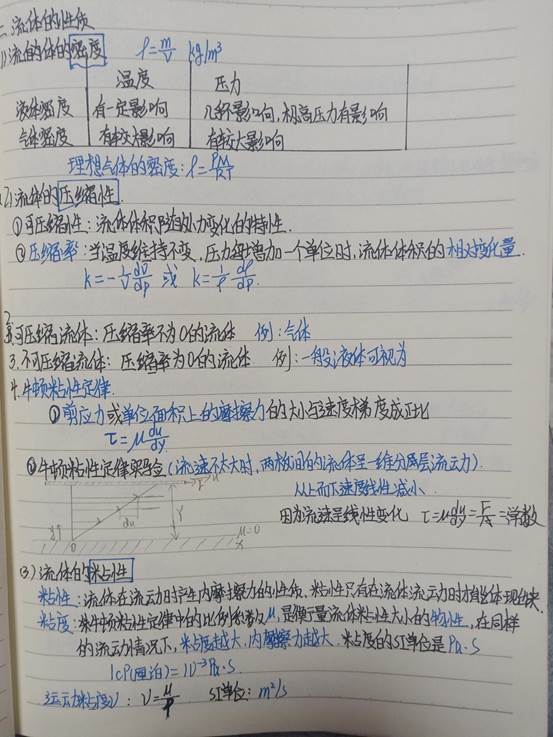 二 流体的性质
(1) 流体的密度 ρ=m/V kg/m³
温度 压力
液体密度 有一定影响 几乎无影响,极高压力有影响
气体密度 有较大影响 有较大影响
理想气体的密度: ρ=PM/RT
(2) 流体的压缩性
①可压缩性: 流体体积随压力变化的特性.
②压缩率: 当温度维持不变,压力每增加一个单位时,流体体积的相对变化量.
k=-1/V dV/dp 或 k=1/ρ dρ/dp.
2.可压缩流体: 压缩率不为0的流体 例: 气体
3.不可压缩流体: 压缩率为0的流体 例: 一般液体可视为
4.牛顿粘性定律.
①剪应力或单位面积上的摩擦力的大小与速度梯度成正比
τ=μ du/dy
②牛顿粘性定律实验(流速不太大时,两板间的流体呈一维分层层流流动).
从上而下速度线性减小.
因为流速呈线性变化 τ=μ du/dy=F/A=常数
u F
y Y du u=0
0 x
(3) 流体的粘性
粘性: 流体在流动时产生内摩擦力的性质,粘性只有在流体流动时才能体现出来.
粘度: 牛顿粘性定律中的比例系数μ,是衡量流体粘性大小的物性,在同样
的流动情况下,粘度越大,内摩擦力越大.粘度的SI单位是Pa·S
1cP(厘泊)=10⁻³Pa·S.
运动粘度ν: ν=μ/ρ SI单位: m²/s